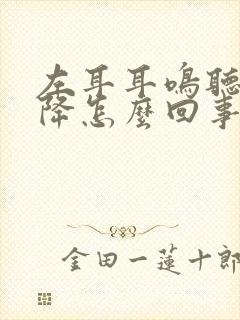 左耳耳鳴聽
降怎麼回事
金田一蓮十郎